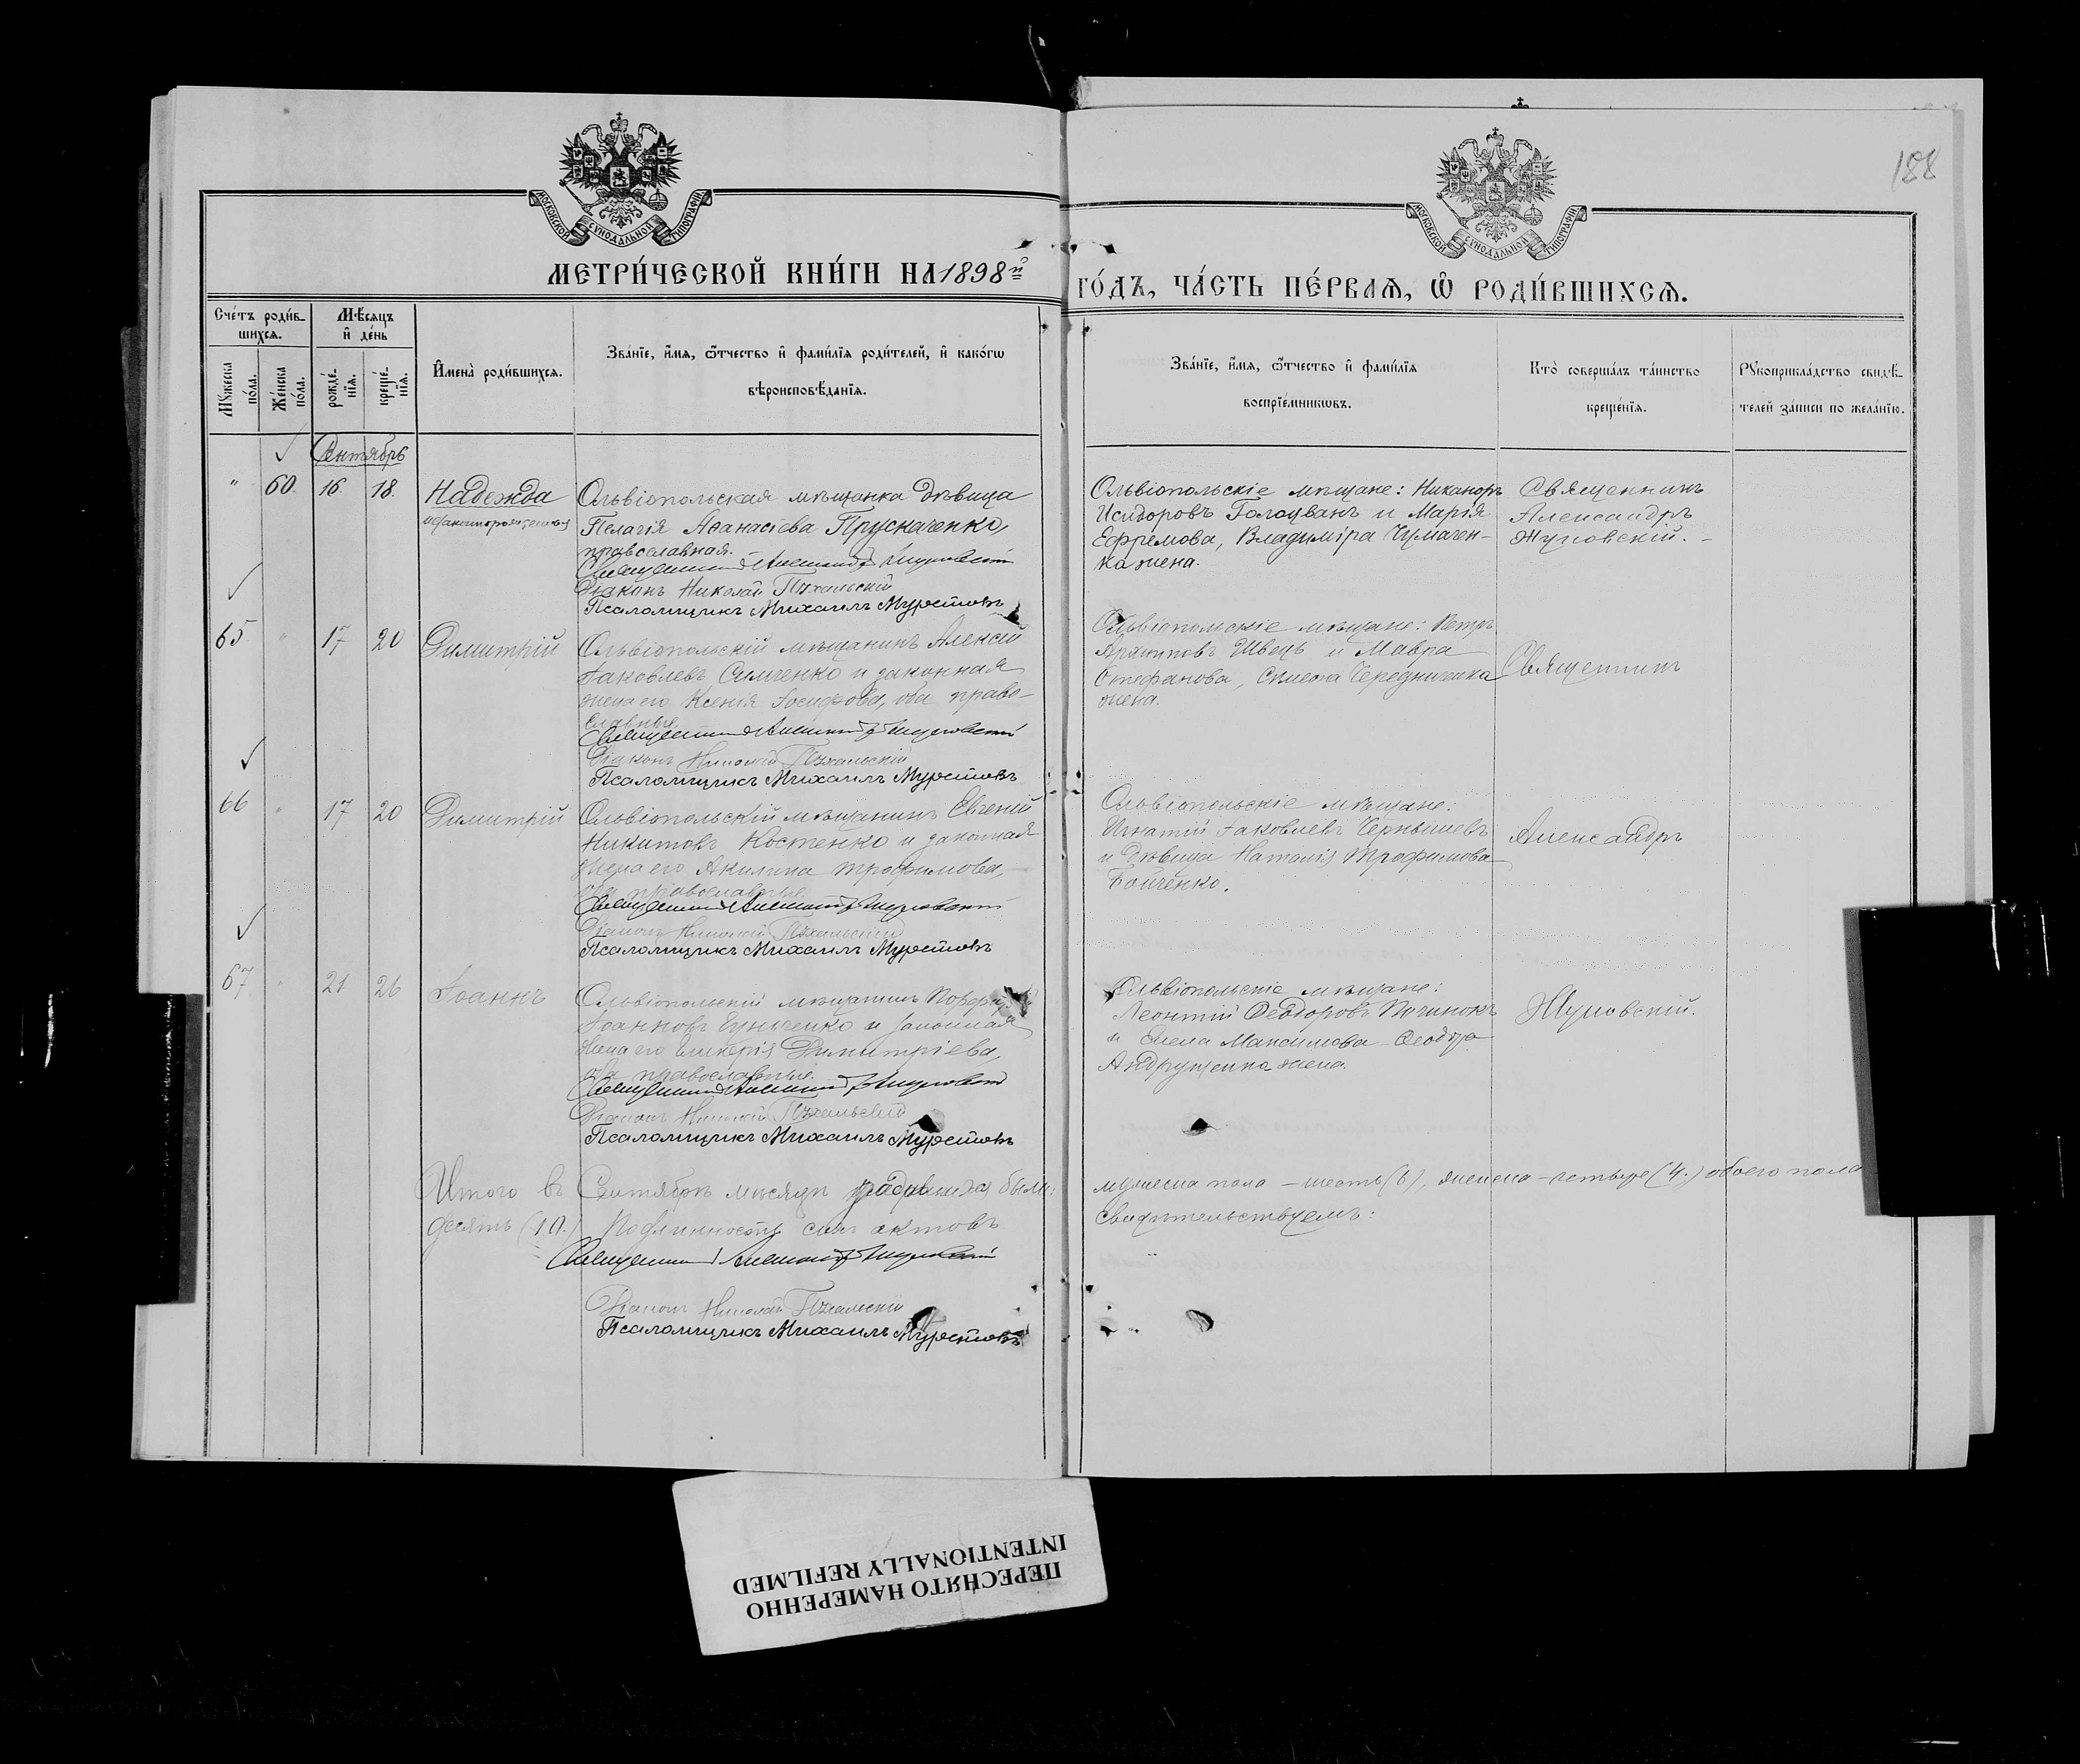 188
МОСКОВСКОЙ СѴНОДАЛЬНОЙ ТИПОГРАФІИ
МОСКОВСКОЙ СѴНОДАЛЬНОЙ ТИПОГРАФІИ
МЕТРИ́ЧЕСКОЙ КНИ́ГИ НА 1898й
ГО́ДЪ, ЧА́СТЬ ПЕ́РВАѦ, Ѡ҆ РОДИ́ВШИХСѦ.
Сче́тъ роди́в-
шихсѧ.
Мꙋжеска по́ла.
Же́нска по́ла.
Мѣ́сѧцъ
и҆ де́нь
рожде́-
нїѧ.
креще́-
нїѧ.
И҆мена̀ роди́вшихсѧ.
Зва́нїе, и҆́мѧ, ѻ҆́тчество и҆ фами́лїѧ роди́телей, и҆ како́гѡ
вѣроисповѣ́данїѧ.
Зва́нїе, и҆́мѧ, ѻ҆́тчество и҆ фами́лїѧ
воспрїе́мникѡвъ.
Кто̀ соверша́лъ та́инство
креще́нїѧ.
Рꙋкоприкла́дство свидѣ́-
телей за́писи по жела́нїю.
Сентябрь
" 60. 16. 18. Надежда
Ольвіопольская мѣщанка дѣвица
Пелагія Аѳанасіева Прускаченко,
православная.
Священникъ Александръ Жуковскій
Діаконъ Николай Пухальскій
Псаломщикъ Михаилъ Муретовъ
Ольвіопольскіе мѣщане: Никаноръ
Исидоровъ Голоцванъ и Марія
Ефремова, Владиміра Чумачен-
ка жена.
Священникъ
Александръ
Жуковскій. -
65 " 17 20 Димитрій
Ольвіопольскій мѣщанинъ Алексій
Іаковлевъ Симченко и законная
жена его Ксенія Іосифова, оба право-
славные.
Священникъ Александръ Жуковскій
Діаконъ Николай Пухальскій
Псаломщикъ Михаилъ Муретовъ
Ольвіопольскіе мѣщане: Петръ
Архиповъ Швецъ и Мавра
Стефанова, Чередниченка
жена.
Священникъ
66 " 17 20 Димитрій
Ольвіопольскій мѣщанинъ Евгеній
Никитовъ Костенко и законная
жена его Акилина Трофимова,
оба православные.
Священникъ Александръ Жуковскій
Діаконъ Николай Пухальскій
Псаломщикъ Михаилъ Муретовъ
Ольвіопольскіе мѣщане:
Игнатій Іаковлевъ Чернышевъ
и дѣвица Наталія Трофимова
Бойченко.
Александръ
67 " 21 26 Іоаннъ
Ольвіопольскій мѣщанинъ
Іоанновъ и законная
жена его Гликерія Димитріева,
оба православные.
Священникъ Александръ Жуковскій
Діаконъ Николай Пухальскій
Псаломщикъ Михаилъ Муретовъ
Ольвіопольскіе мѣщане:
Леонтій Ѳеодоровъ Починокъ
и Елена Максимова Ѳеодора
Андрущенка жена.
Жуковскій.
Итого въ Сентябрѣ мѣсяцѣ родившихся было: мужеска пола - шесть (6), женска - четыре (4.) обоего пола
десять (10.) Подлинность сихъ актовъ свидѣтельствуемъ:
Священникъ Александръ Жуковскій
Діаконъ Николай Пухальскій
Псаломщикъ Михаилъ Муретовъ
ПЕРЕСНЯТО НАМЕРЕННО
INTENTIONALLY REFILMED